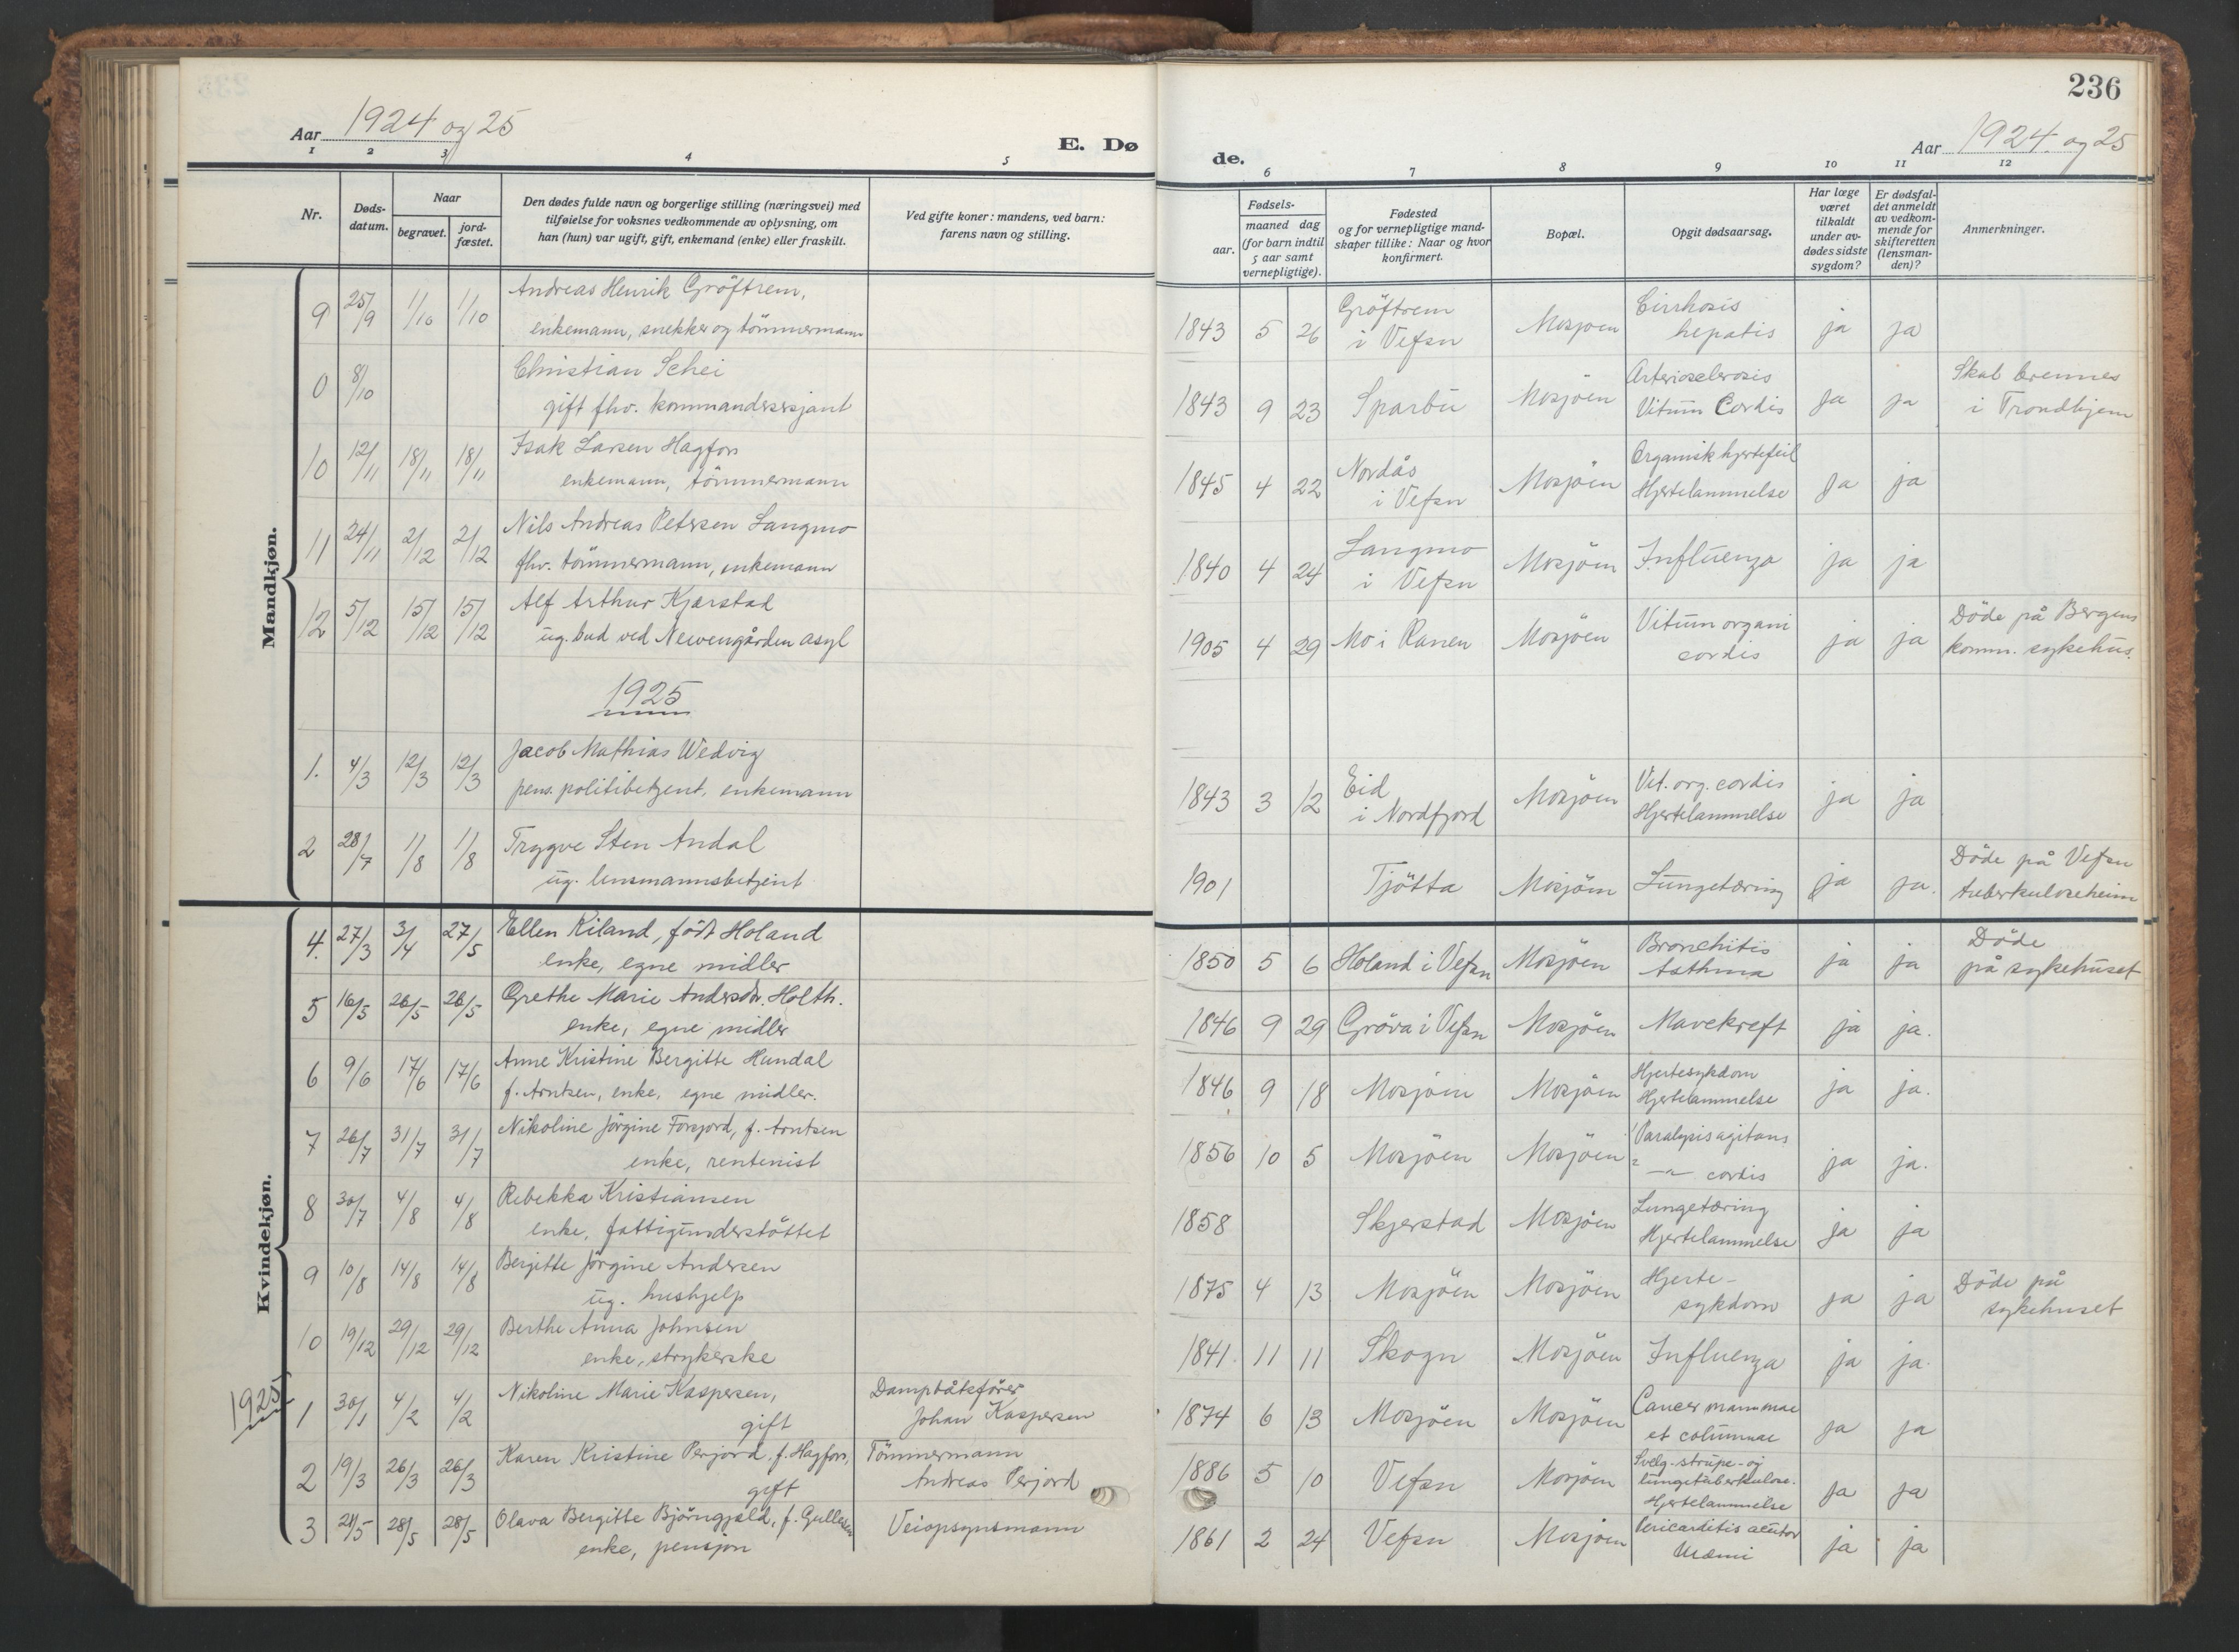 236
Aar 1924 og 25
E. Dø
de.
Aar 1924 og 25
1 2 3 4 5 6 7 8 9 10 11 12
Nr.
Døds-
datum.
Naar
begravet.
jord-
fæstet.
Den dødes fulde navn og borgerlige stilling (næringsvei) med
tilføielse for voksnes vedkommende av oplysning, om
han (hun) var ugift, gift, enkemand (enke) eller fraskilt.
Ved gifte koner: mandens, ved barn:
farens navn og stilling.
Fødsels-
aar.
maaned dag
(for barn indtil
5 aar samt
vernepligtige).
Fødested
og for vernepligtige mand-
skaper tillike: Naar og hvor
konfirmert.
Bopæl.
Opgit dødsaarsag.
Har læge
været
tilkaldt
under av-
dødes sidste
sygdom?
Er dødsfal-
det anmeldt
av vedkom-
mende for
skifteretten
(lensman-
den)?
Anmerkninger.
Mandkjøn.
9 25/9 1/10 1/10 Andreas Henrik Gröftrem,
enkemann, snekker og tömmermann
1843 5 26 Gröftrem
i Vefsn
Mosjöen
Cirrhosis
hepatis
ja ja
0 8/10 Christian Schei
gift fhv. kommandersersjant
1843 9 23 Sparbu Mosjöen
Arteriosclerosis
Vitium Cordis
ja ja
Skal brennes
i Trondhjem
10 12/11 18/11 18/11 Isak Larsen Hagfors
enkemann, tömmermann
1845 4 22 Nordås
i Vefsn
Mosjöen
Organisk hjertefeil
Hjertelammelse
ja ja
11 24/11 2/12 2/12 Nils Andreas Petersen Langmo
fhv. tömmermann, enkemann
1840 4 24 Langmo
i Vefsn
Mosjöen Influenza ja ja
12 5/12 15/12 15/12 Alf Arthur Kjærstad
ug. bud ved Nevengården asyl
1905 4 29 Mo i Ranen Mosjöen
Vitium organi
cordis
ja ja
Döde på Bergens
komm. sykehus.
1925
1. 4/3 12/3 12/3 Jacob Mathias Wedvig
pens. politibetjent, enkemann
1843 3 12 Eid
i Nordfjord
Mosjöen
Vit. org. cordis
Hjertelammelse
ja ja
2 28/7 1/8 1/8 Trygve Sten Andal
ug. lensmannsbetjent
1901 Tjötta Mosjöen Lungetæring ja ja.
Döde på Vefsn
tuberkuloseheim
Kvindekjøn.
4. 27/3 3/4 27/5 Ellen Kiland, födt Holand
enke, egne midler
1850 5 6 Holand i Vefsn Mosjöen
Bronchitis
Asthma
ja ja
Döde
på sykehuset
5 16/5 26/5 26/5 Grethe Marie Andersdr. Holth.
enke, egne midler
1846 9 29 Gröva i Vefsn Mosjöen Mavekreft ja ja.
6 9/6 17/6 17/6 Anne Kristine Bergitte Hundal
f. Arntsen, enke, egne midler.
1846 9 18 Mosjöen Mosjöen
Hjertesykdom
Hjertelammelse
ja ja.
7 26/7 31/7 31/7 Nikoline Jörgine Forsjord, f. Arntsen
enke, rentenist
1856 10 5 Mosjöen Mosjöen
Paralysis agitans
-"- cordis
ja ja.
8 30/7 4/8 4/8 Rebekka Kristiansen
enke, fattigunderstöttet
1858 Skjerstad Mosjöen
Lungetæring
Hjertelammelse
ja ja
9 10/8 14/8 14/8 Bergitte Jörgine Andersen
ug. hushjelp
1875 4 13 Mosjöen Mosjöen
Hjerte-
sykdom
ja ja
Döde på
sykehuset
10 19/12 29/12 29/12 Berthe Anna Johnsen
enke, strykerske
1841. 11 11 Skogn Mosjöen Influenza ja ja.
1925
1 30/1 4/2 4/2 Nikoline Marie Kaspersen,
gift
Dampbåtsförer
Johan Kaspersen
1874 6 13 Mosjöen Mosjöen
Cancer mammae
et columnae
ja ja
2 19/3 26/3 26/3 Karen Kristine Perjord, f. Hagfors,
gift
Tömmermann
Andreas Perjord
1886 5 10 Vefsn Mosjöen
Svelg-strupe- og
lungetuberkulose.
Hjertelammelse
ja ja
3 21/5 28/5 28/5 Olava Bergitte Björngjeld, f. Gullesen
enke, pensjon
Veiopsynsmann
1861 2 24 Vefsn Mosjöen
Pericarditis
Uræmi
ja ja